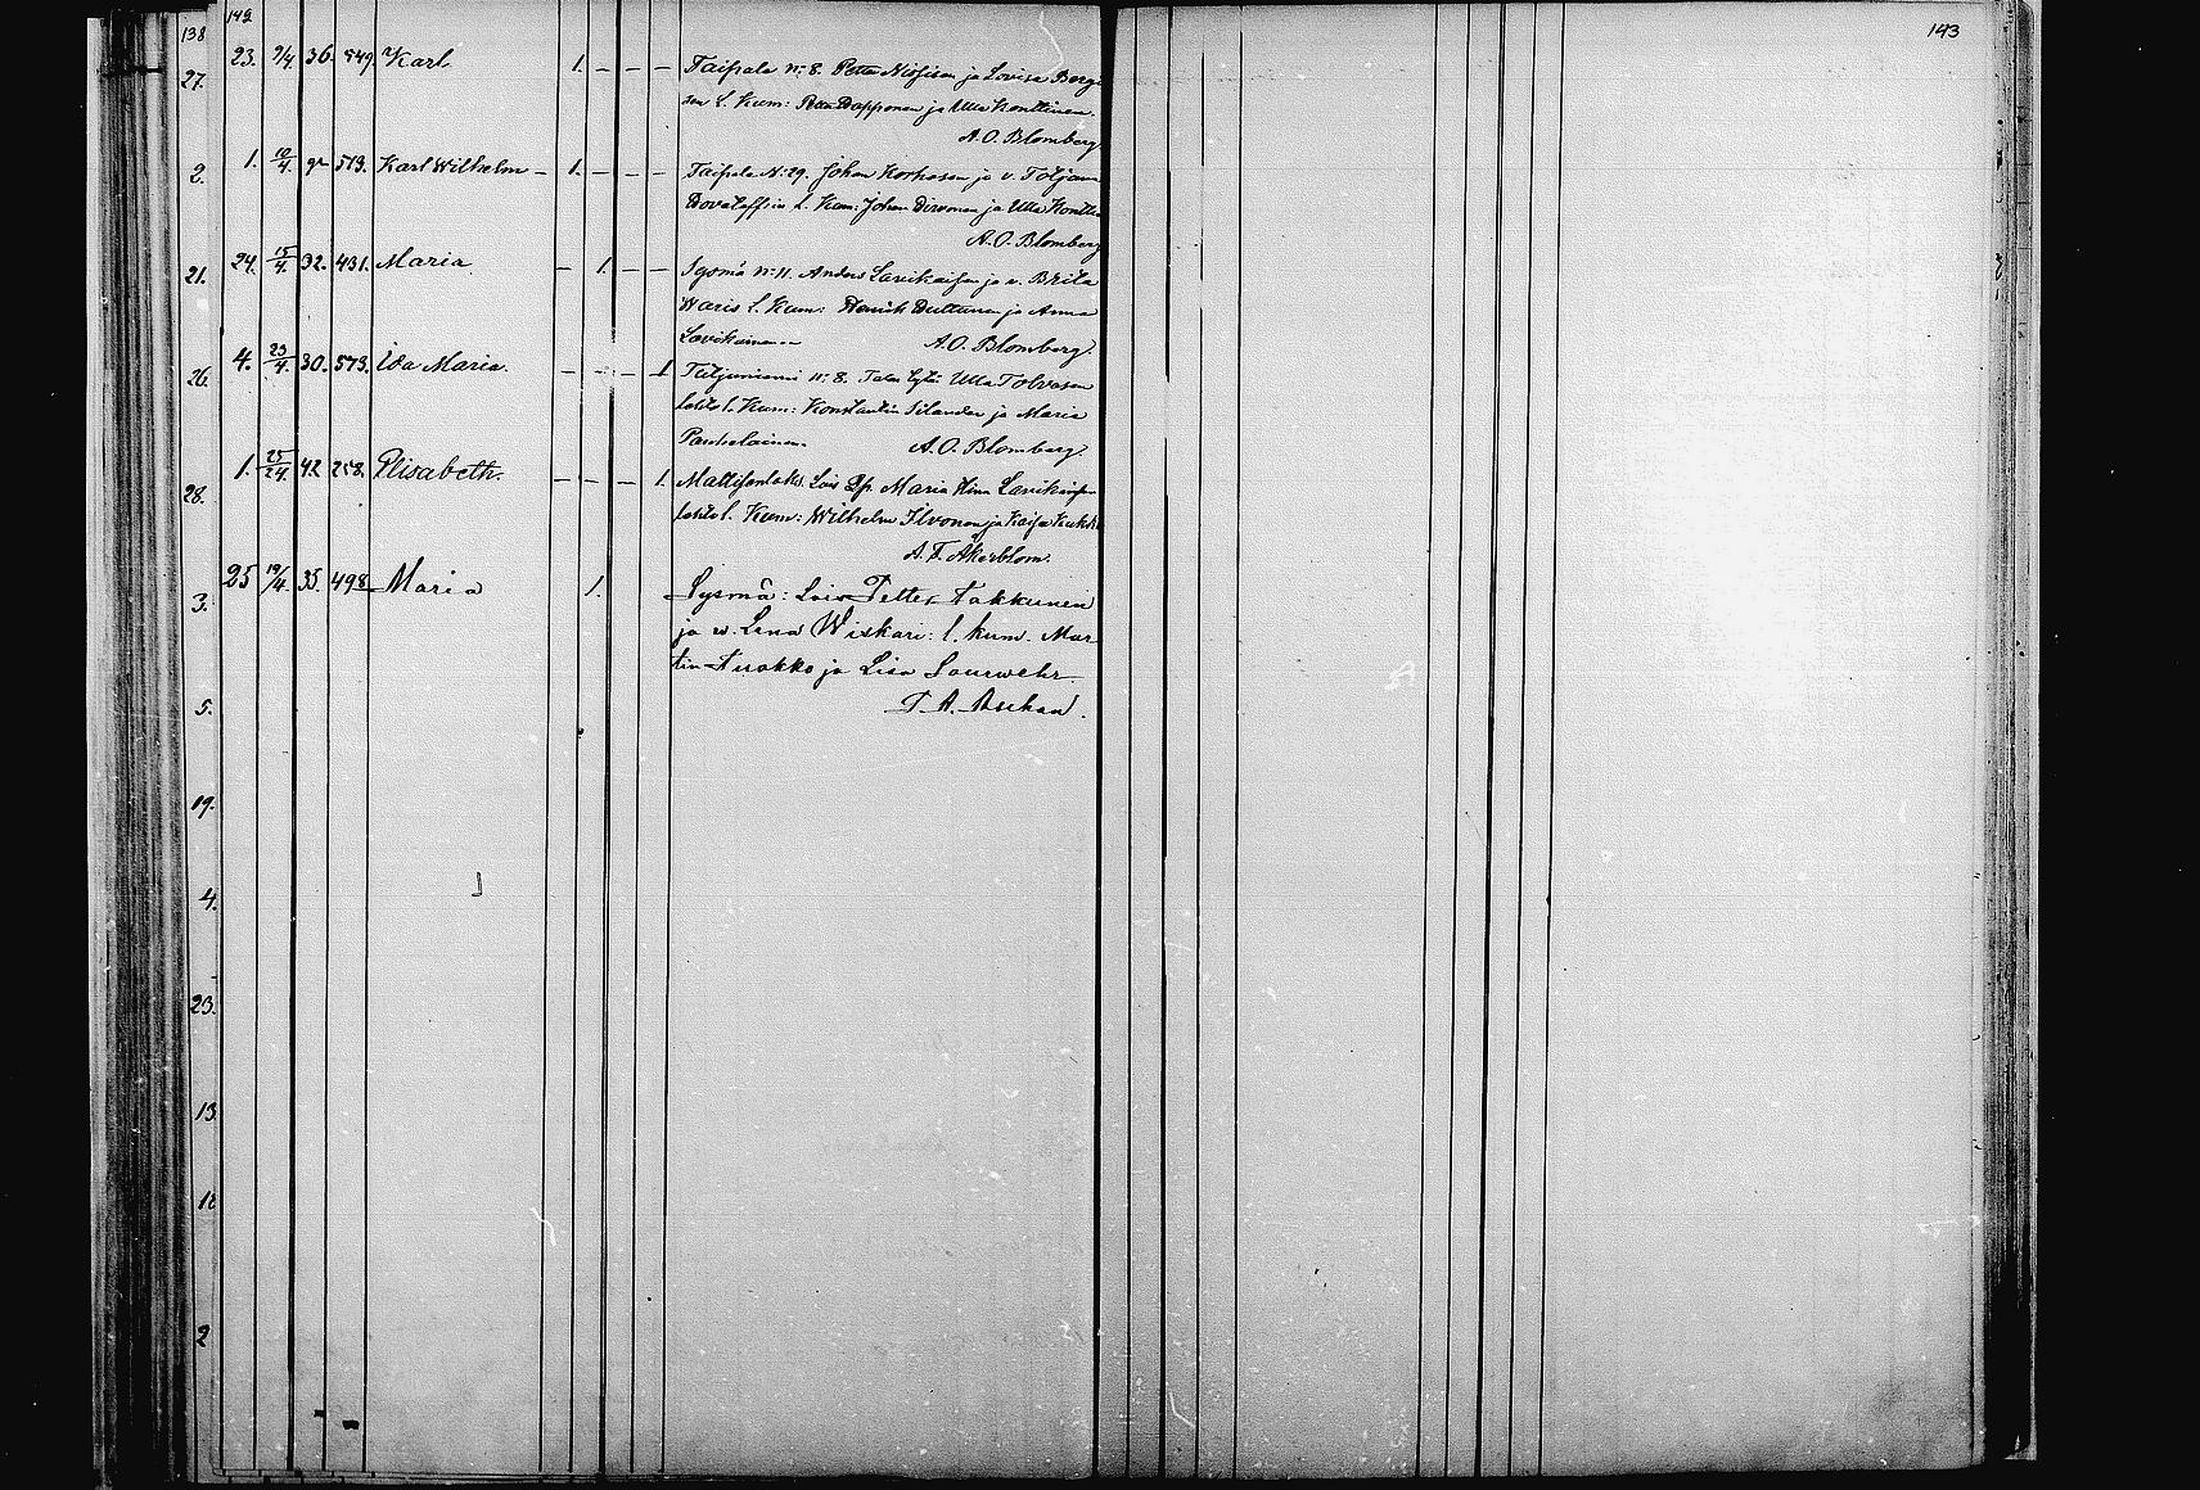 142
138
143
23. 9/4. 36. 549. Karl 1. - - - Taipale N:8. Petter Niskisen ja Lovisa Bergi
sen l. Kum: Petter Papponen ja Ulla Konttinen.
A. O. Blomberg
27.
1. 10/4. 513. Karl Wilhelm - 1. - - - Taipale N:29. Johan Korhosen ja v. Tatjana
l. Kum: Johan Dirvonen ja Ulla Kontti
A. O. Blomberg
2.
24. 15/4. 32. 431. Maria - 1. - - Sysmä N:11. Anders Lavikaisen ja v. Brita
Waris l. Kum: Henrik Pulttunen ja Anna
Lavikainen A. O. Blomberg.
21.
4. 23/4. 30. 573. Ida Maria. - - - 1 N:8. Ulla Tolvasen
lehto l. Kum: Konstantin Silander ja Maria
A. O. Blomberg.
26.
1. 25/24. 42. 258. Elisabeth. - - - 1. Lois Maria Lavikaisen
lehto l. Kum: Wilhelm Ilvonen ja Kaisa
A. F. Åkerblom.
28.
25 19/4. 35. 498 Maria 1. Sysmä: Lois Petter Takkunen
ja w. Lena Wiskari: l. kum. Mar
tin Turakko ja Lisa Sourwehr
T. A. Aschan.
3.
5.
19.
4.
23.
13.
18
2